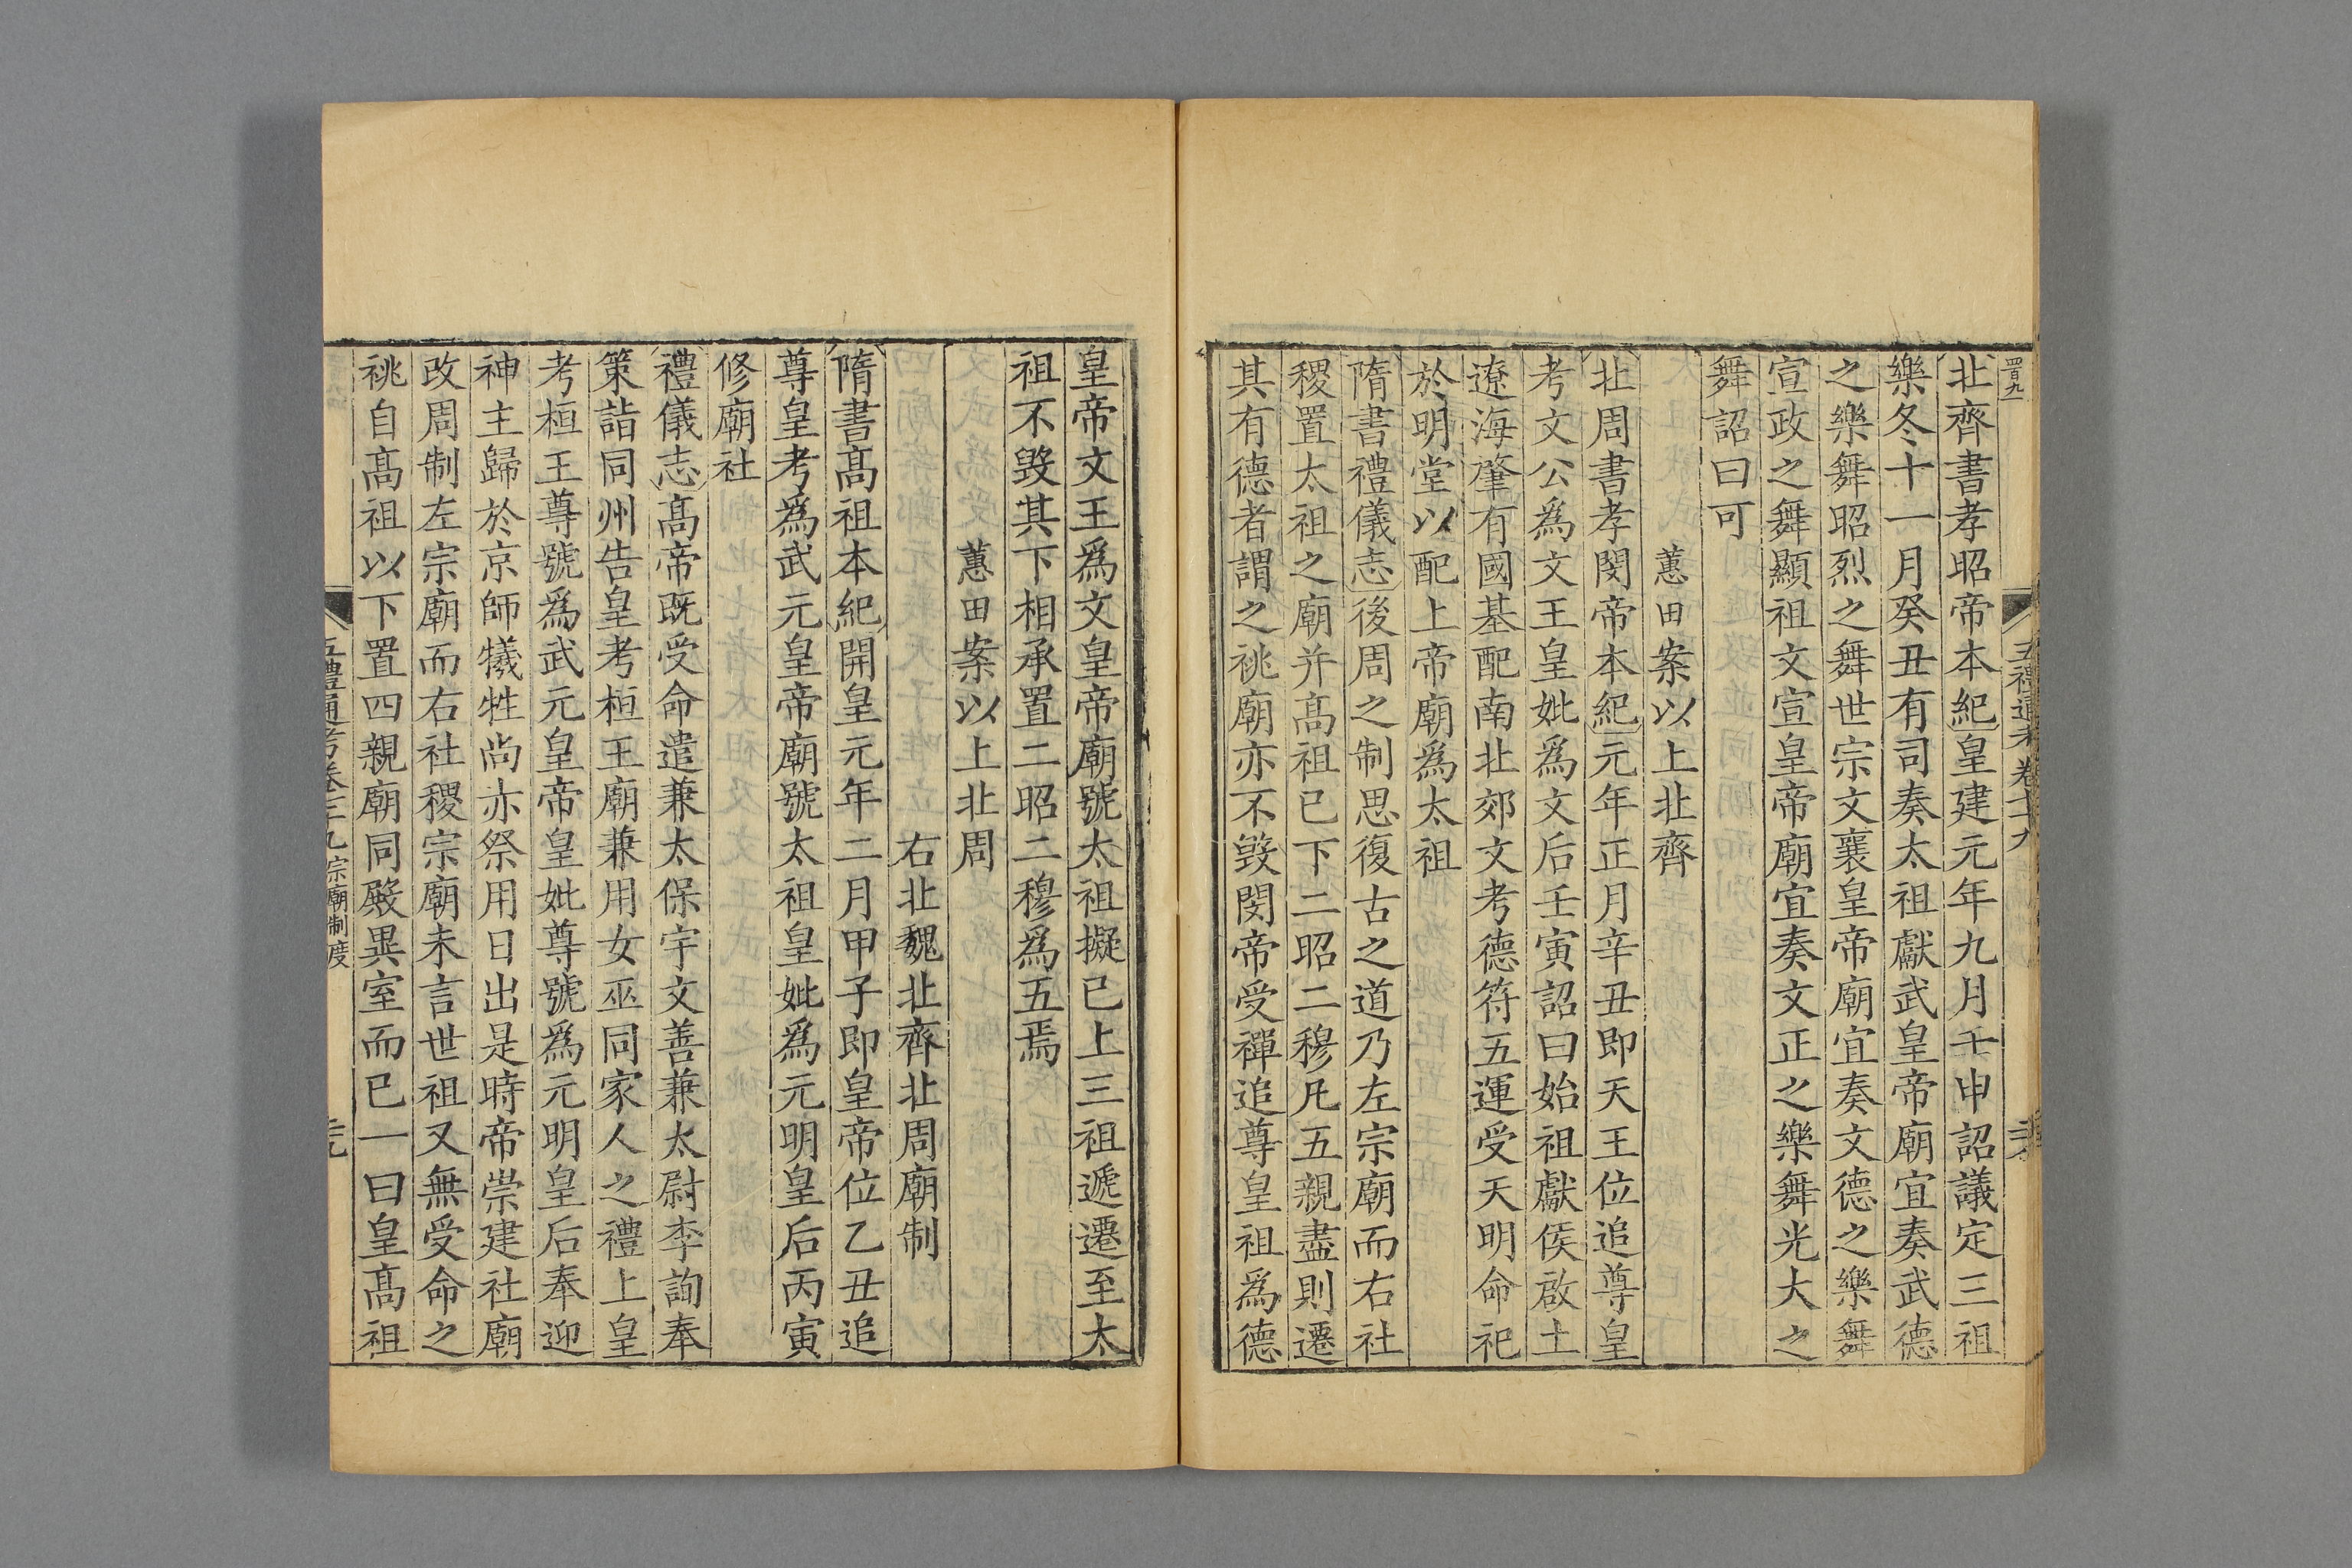 北齊書孝昭帝本紀皇建元年九月壬申詔議定三祖
樂冬十一月癸丑有司奏太祖獻武皇帝廟宜奏武德
之樂舞昭烈之舞世宗文襄皇帝廟宜奏文德之樂舞
宣政之舞顯祖文宣皇帝廟宜奏文正之樂舞光大之
舞詔曰可
蕙田案以上北齊
北周書孝閔帝本紀元年正月辛丑即天王位追尊皇
考文公為文王皇妣為文后壬寅詔曰始祖獻侯啟土
遼海肇有國基配南北郊文考德符五運受天明命祀
於明堂以配上帝廟為太祖
隋書禮儀志後周之制思復古之道乃左宗廟而右社
稷置太祖之廟并髙祖已下二昭二穆凡五親盡則遷
其有德者謂之祧廟亦不毀閔帝受禪追尊皇祖爲德
皇帝文王爲文皇帝廟號太祖擬已上三祖遞遷至太
祖不毀其下相承置二昭二穆爲五焉
蕙田案以上北周
右北魏北齊北周廟制
隋書髙祖本紀開皇元年二月甲子即皇帝位乙丑追
尊皇考爲武元皇帝廟號太祖皇妣爲元明皇后丙寅
修廟社
禮儀志髙帝既受命遣兼太保宇文善兼太尉李詢奉
策詣同州告皇考桓王廟兼用女巫同家人之禮上皇
考桓王尊號爲武元皇帝皇妣尊號爲元明皇后奉迎
神主歸於京師犧牲尚赤祭用日出是時帝崇建社廟
改周制左宗廟而右社稷宗廟未言世祖又無受命之
祧自髙祖以下置四親廟同殿異室而已一曰皇髙祖
五禮通考卷七十九 宗廟制度